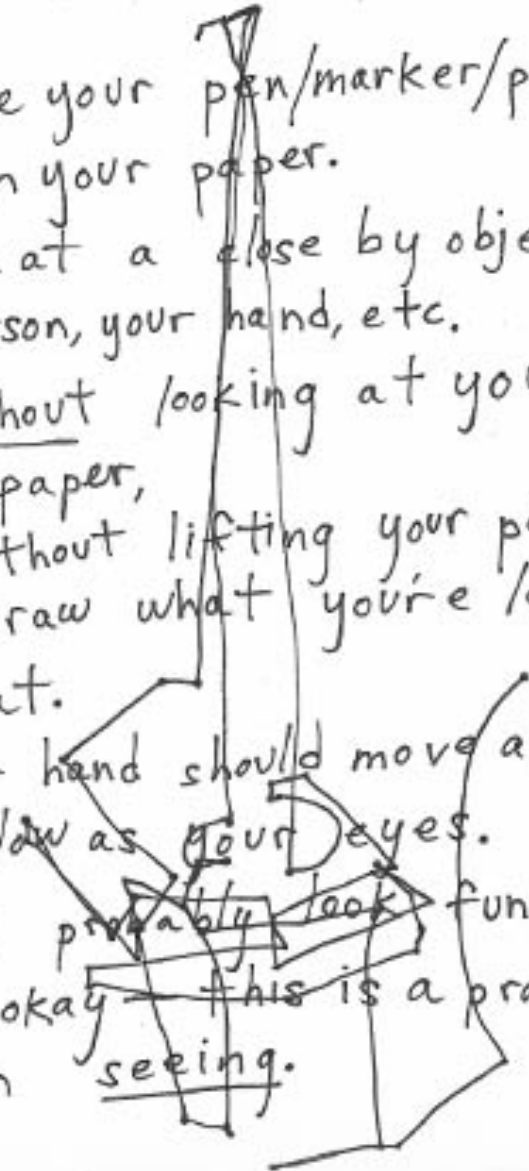 e your pen/marker/p
n your paper.
at a close by obje
son, your hand, etc.
hout looking at you
paper,
thout lifting your p
raw what you're l
at.
hand should move a
low as your eyes.
probably look fun
okay — this is a pra
n seeing.